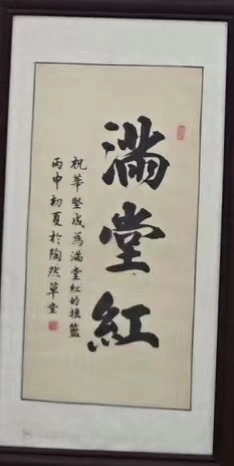 滿堂紅
祝華堅成爲滿堂紅的搖籃
丙申初夏於陶然草堂